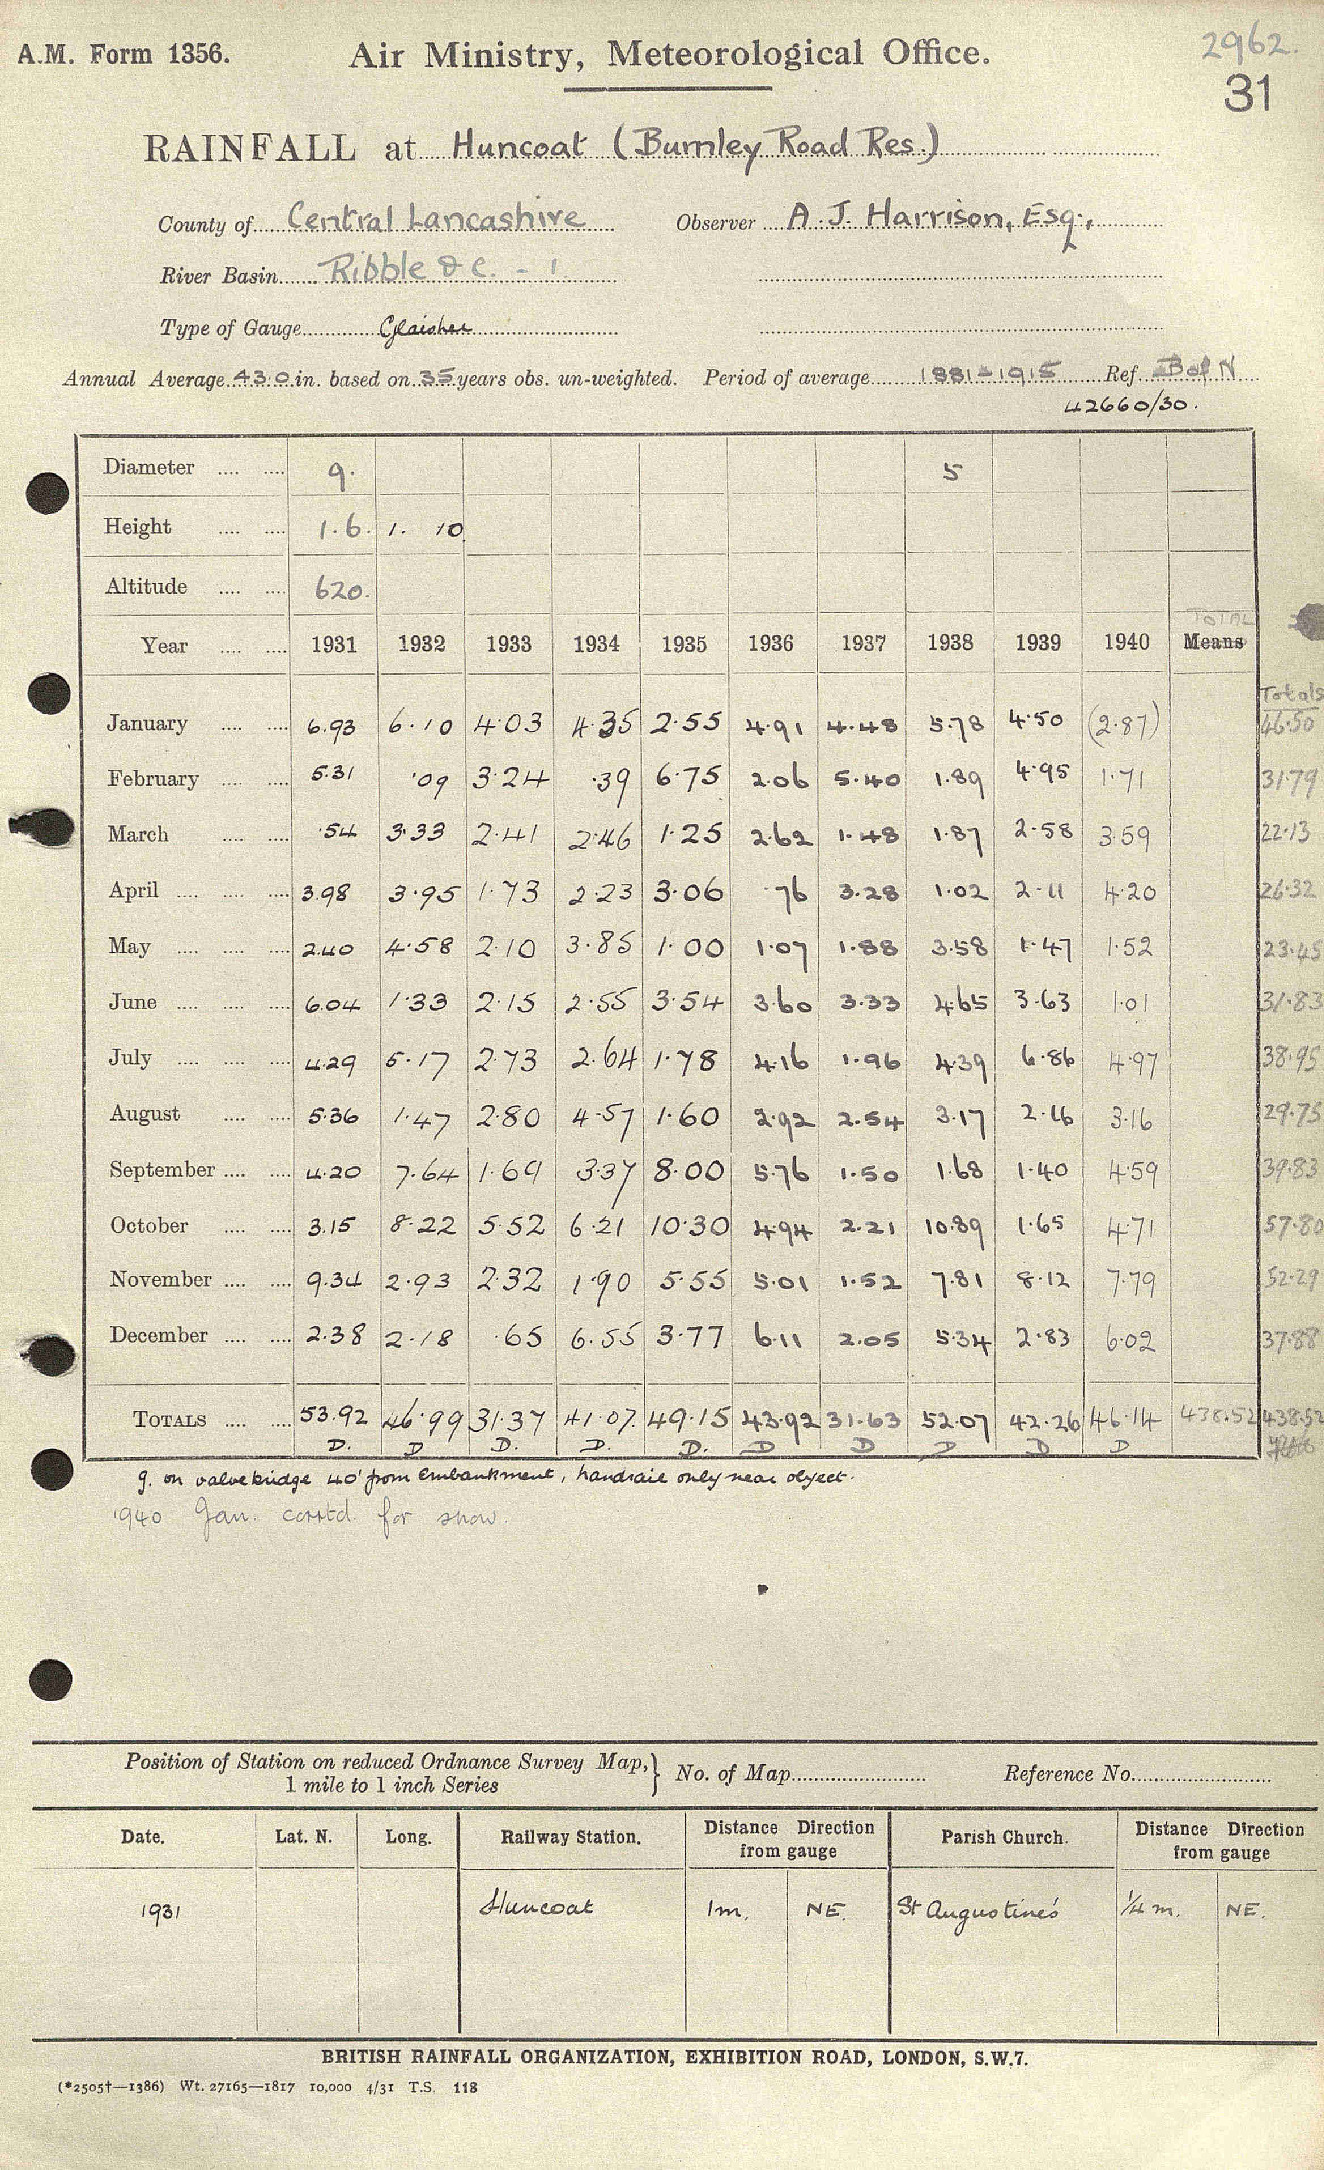 2962.
A.M. Form 1356. Air Ministry, Meteorological Office.
31
RAINFALL at Huncoat (Burnley Road Res.)
County of Central Lancashire Observer A. J. Harrison, Esq.,
River Basin Ribble &c. - 1.
Type of Gauge Glaisher
Annual Average 43.0 in. based on 35 years obs. un-weighted. Period of average 1881-1915 Ref.
42660/30.
Diameter .... .... 9. 5
Height .... .... 1. 6. 1. 10
Altitude .... .... 620.
TOTAL
Year .... .... 1931 1932 1933 1934 1935 1936 1937 1938 1939 1940 Means
Totals
January .... .... 6.93 6.10 4.03 4.35 2.55 4.91 4.48 5.78 4.50 (2.87) 46.50
February .... .... 5.31 .09 3.24 .39 6.75 2.06 5.40 1.89 4.95 1.71 31.79
March .... .... .54 3.33 2.41 2.46 1.25 2.62 1.48 1.87 2.58 3.59 22.13
April .... .... .... 3.98 3.95 1.73 2.23 3.06 .76 3.28 1.02 2.11 4.20 26.32
May .... .... .... 2.40 4.58 2.10 3.85 1.00 1.07 1.88 3.58 1.47 1.52 23.45
June .... .... .... 6.04 1.33 2.15 2.55 3.54 3.60 3.33 4.65 3.63 1.01 31.83
July .... .... .... 4.29 5.17 2.73 2.64 1.78 4.16 1.96 4.39 6.86 4.97 38.95
August .... .... 5.36 1.47 2.80 4.57 1.60 2.92 2.54 3.17 2.16 3.16 29.75
September .... .... 4.20 7.64 1.69 3.37 8.00 5.76 1.50 1.68 1.40 4.59 39.83
October .... .... 3.15 8.22 5.52 6.21 10.30 4.94 2.21 10.89 1.65 4.71 57.80
November .... .... 9.34 2.93 2.32 1.90 5.55 5.01 1.52 7.81 8.12 7.79 52.29
December .... .... 2.38 2.18 .65 6.55 3.77 6.11 2.05 5.34 2.83 6.02 37.88
TOTALS .... .... 53.92 46.99 31.37 41.07. 49.15 43.92 31.63 52.07 42.26 46.14 438.52 438.52
D. D D. D. D. D D D D D
g. on valve bridge 40' from Embankment, handrail only near object.
1940 Jan. corrtd for snow.
Position of Station on reduced Ordnance Survey Map,} No. of Map Reference No.
1 mile to 1 inch Series
Date. Lat. N. Long. Railway Station. Distance Direction from gauge Parish Church. Distance Direction from gauge
1931 Huncoat 1m. NE. St Augustine's 1/4 m. NE.
BRITISH RAINFALL ORGANIZATION, EXHIBITION ROAD, LONDON, S.W.7.
(*2505†—1386) Wt. 27165—1817 10,000 4/31 T.S. 118